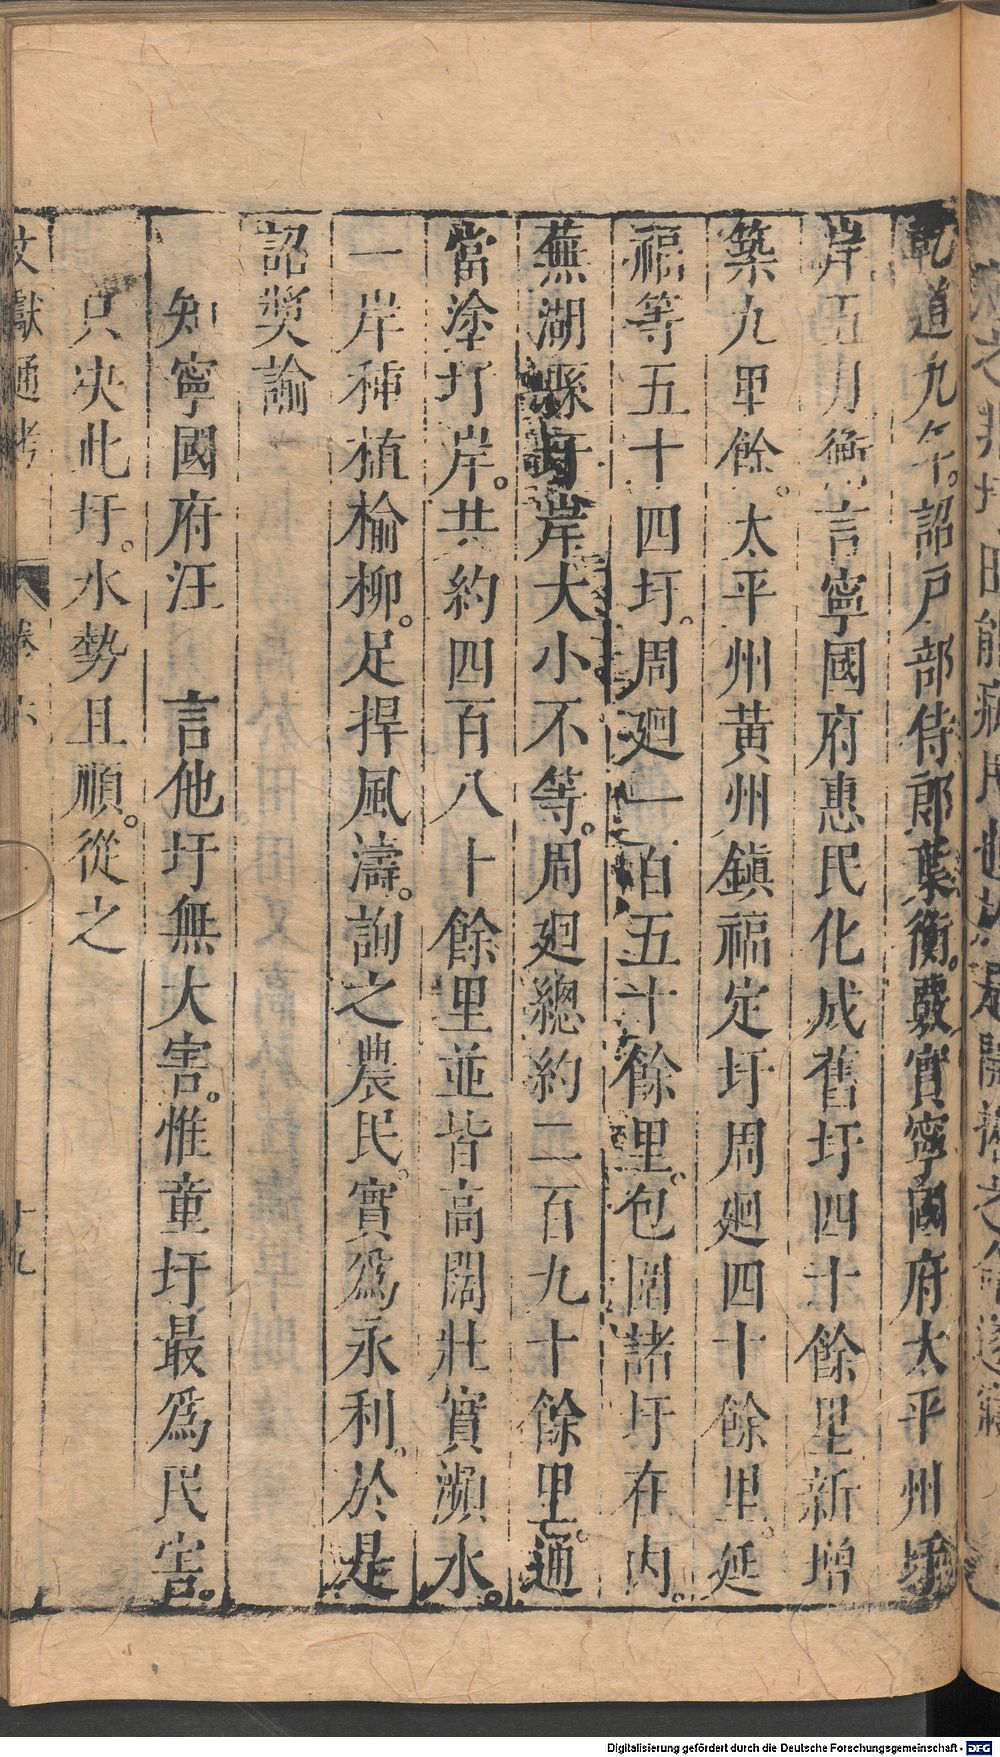 乾道九年詔戶部侍郎葉衡覈實寧國府太平州圩
岸五月衡言寧國府惠民化成舊圩四十餘里新增
築九里餘太平州黃州鎮福定圩周廻四十餘里延
福等五十四圩周廻一百五十餘里包圍諸圩在內
蕪湖縣圩岸大小不等周廻總約二百九十餘里通
當塗圩岸共約四百八十餘里並皆高闊壯實瀕水
一岸種植榆柳足捍風濤詢之農民實爲永利於是
詔獎諭
知寧國府汪　言他圩無大害惟童圩最爲民害
只決此圩水勢且順從之
文獻通考 卷六 十九
Digitalisierung gefördert durch die Deutsche Forschungsgemeinschaft - DFG